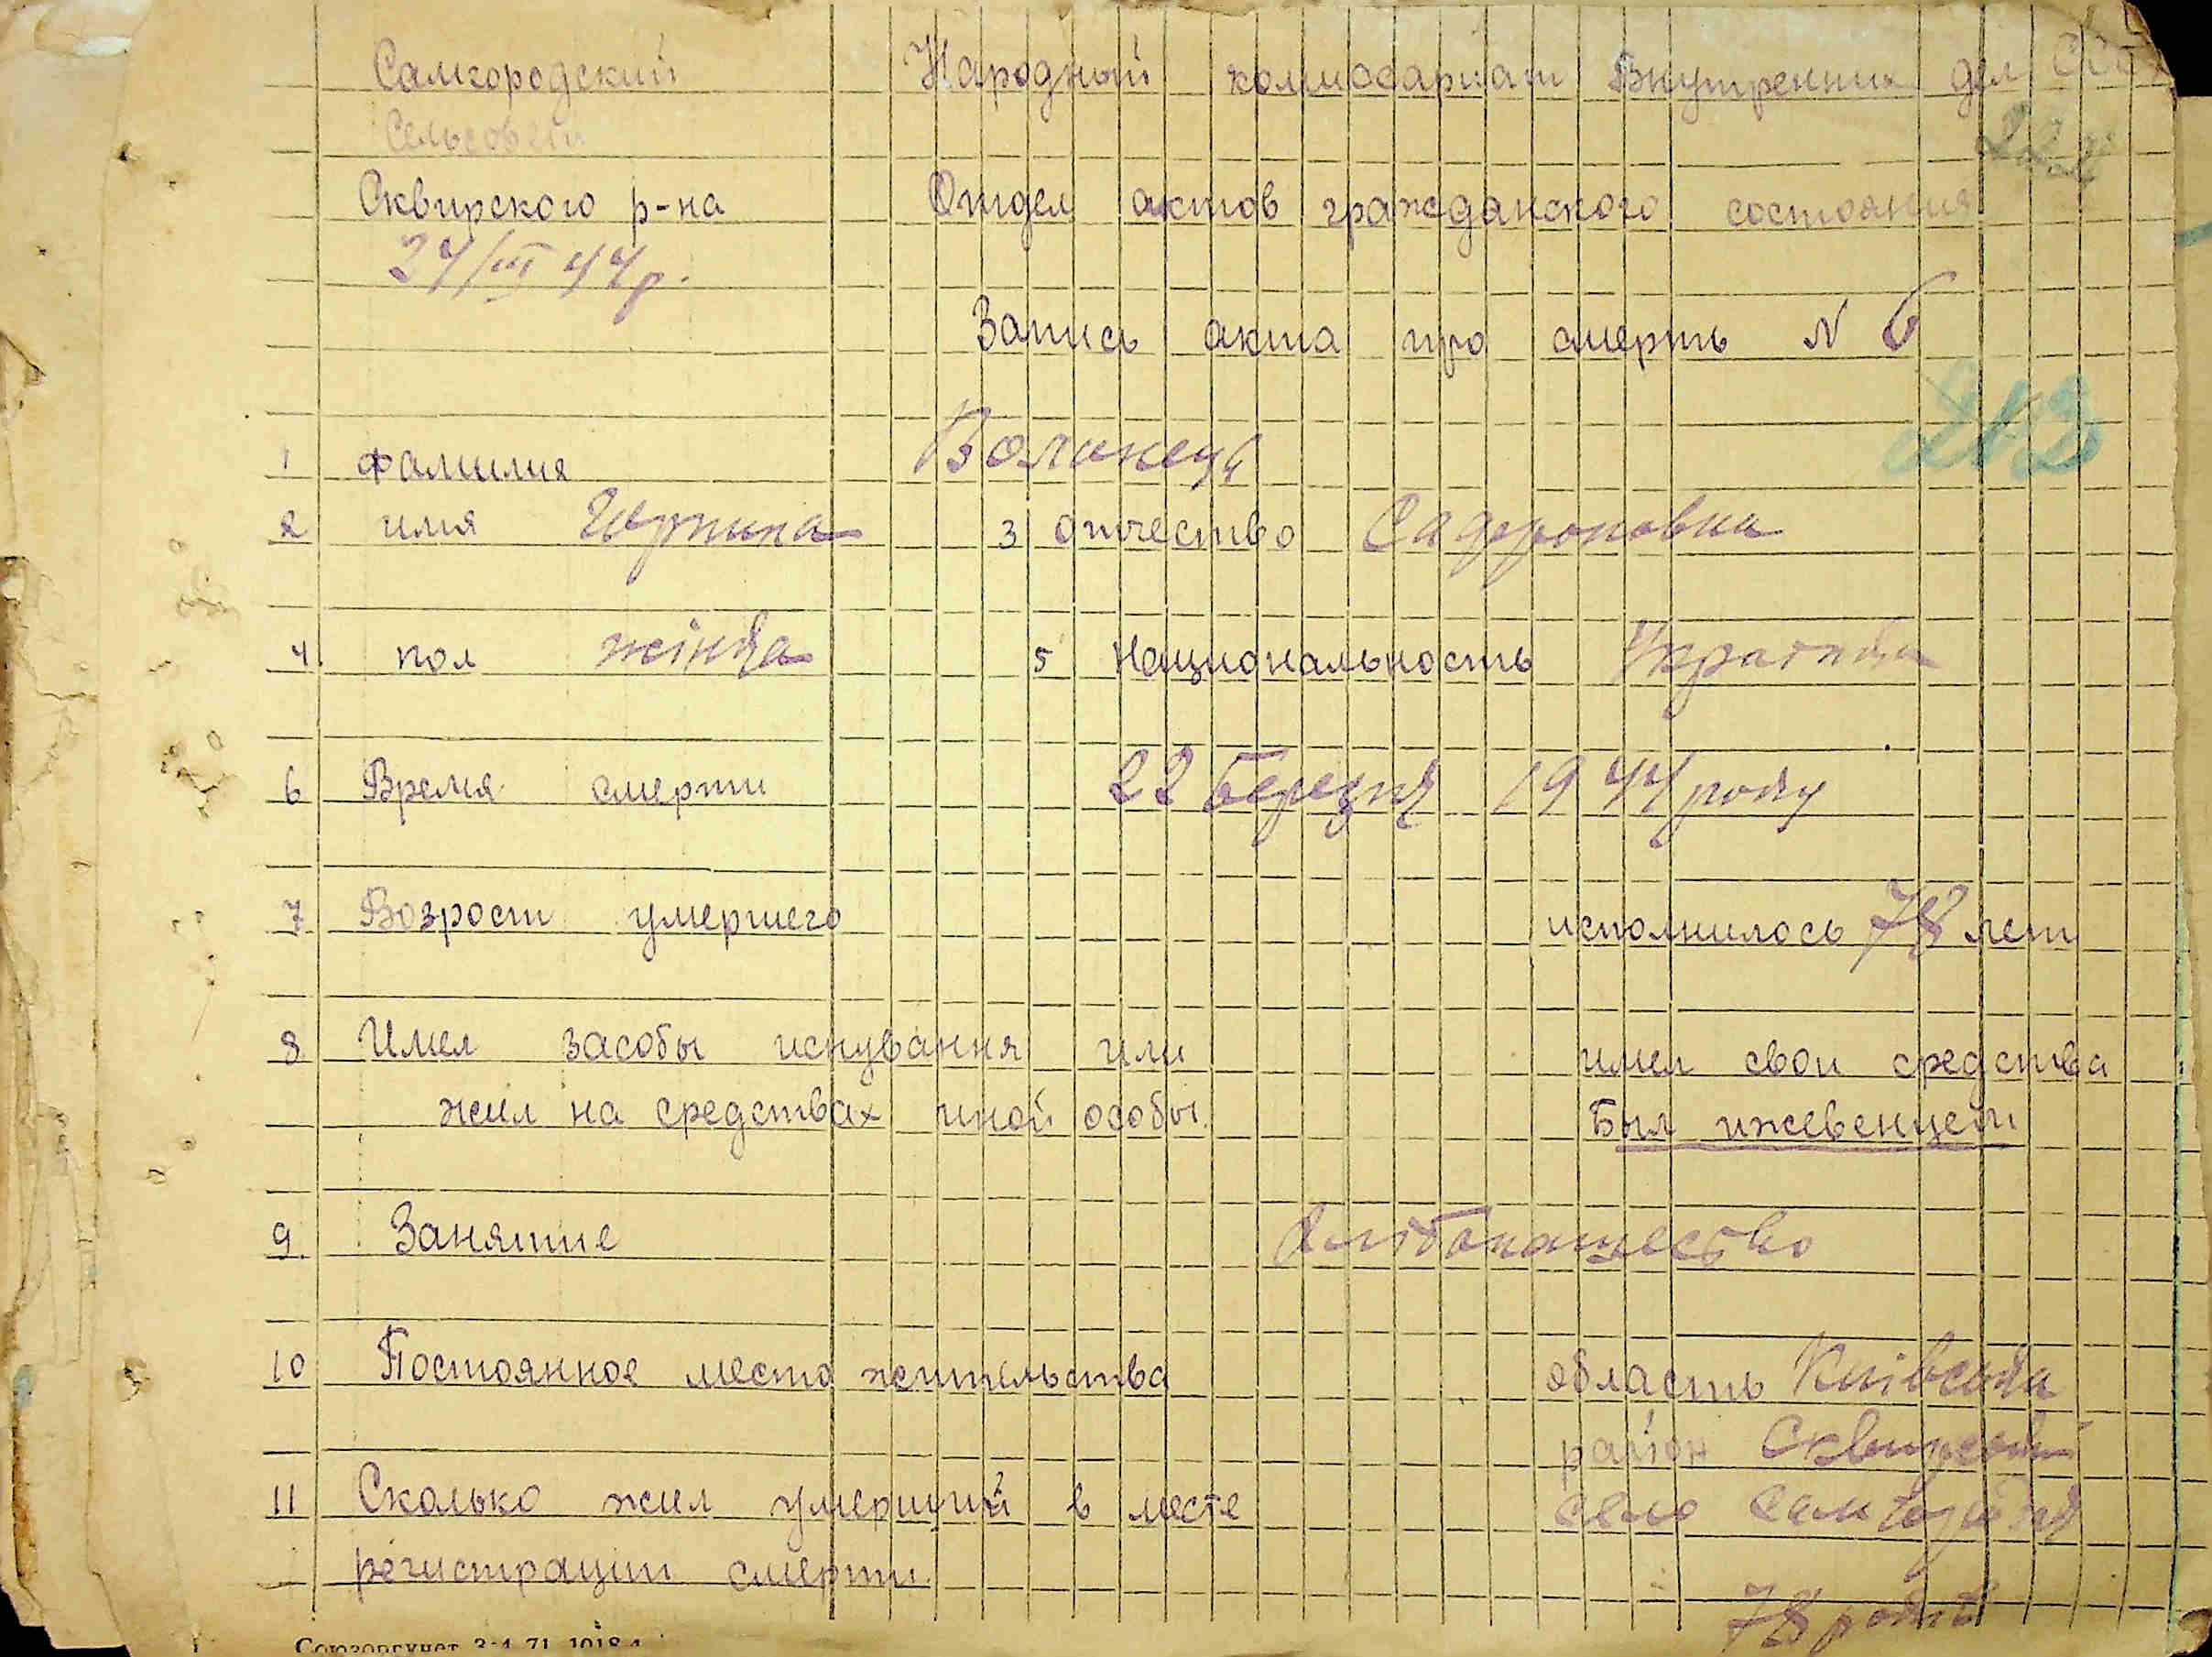 Самгородский Народный коммисариат Внутренних дел СССР
Сельсовет
Сквирского р-на Отдел актов гражданского состояния
24/III 44 р.
Запись акта про смерть N 6
213
1 фамилия Волинець
2 имя 3 отчество Сафроновна
4. пол жінка 5 Национальность Українка
6 Время смерти 22 Березня 1944 року
7 Возрост умершего исполнилось 78 лет
8 Имел засобы иснування или имел свои средства
жил на средствах иной особы. Был ижевенцем
9. Занятие Хлібопашество
10 Постоянное место жительства область Київська
район Сквирський
11 Сколько жил умерший в месте село Самгородок
регистрации смерти 78 років
Союзоргучет 3-4 71 1018 4